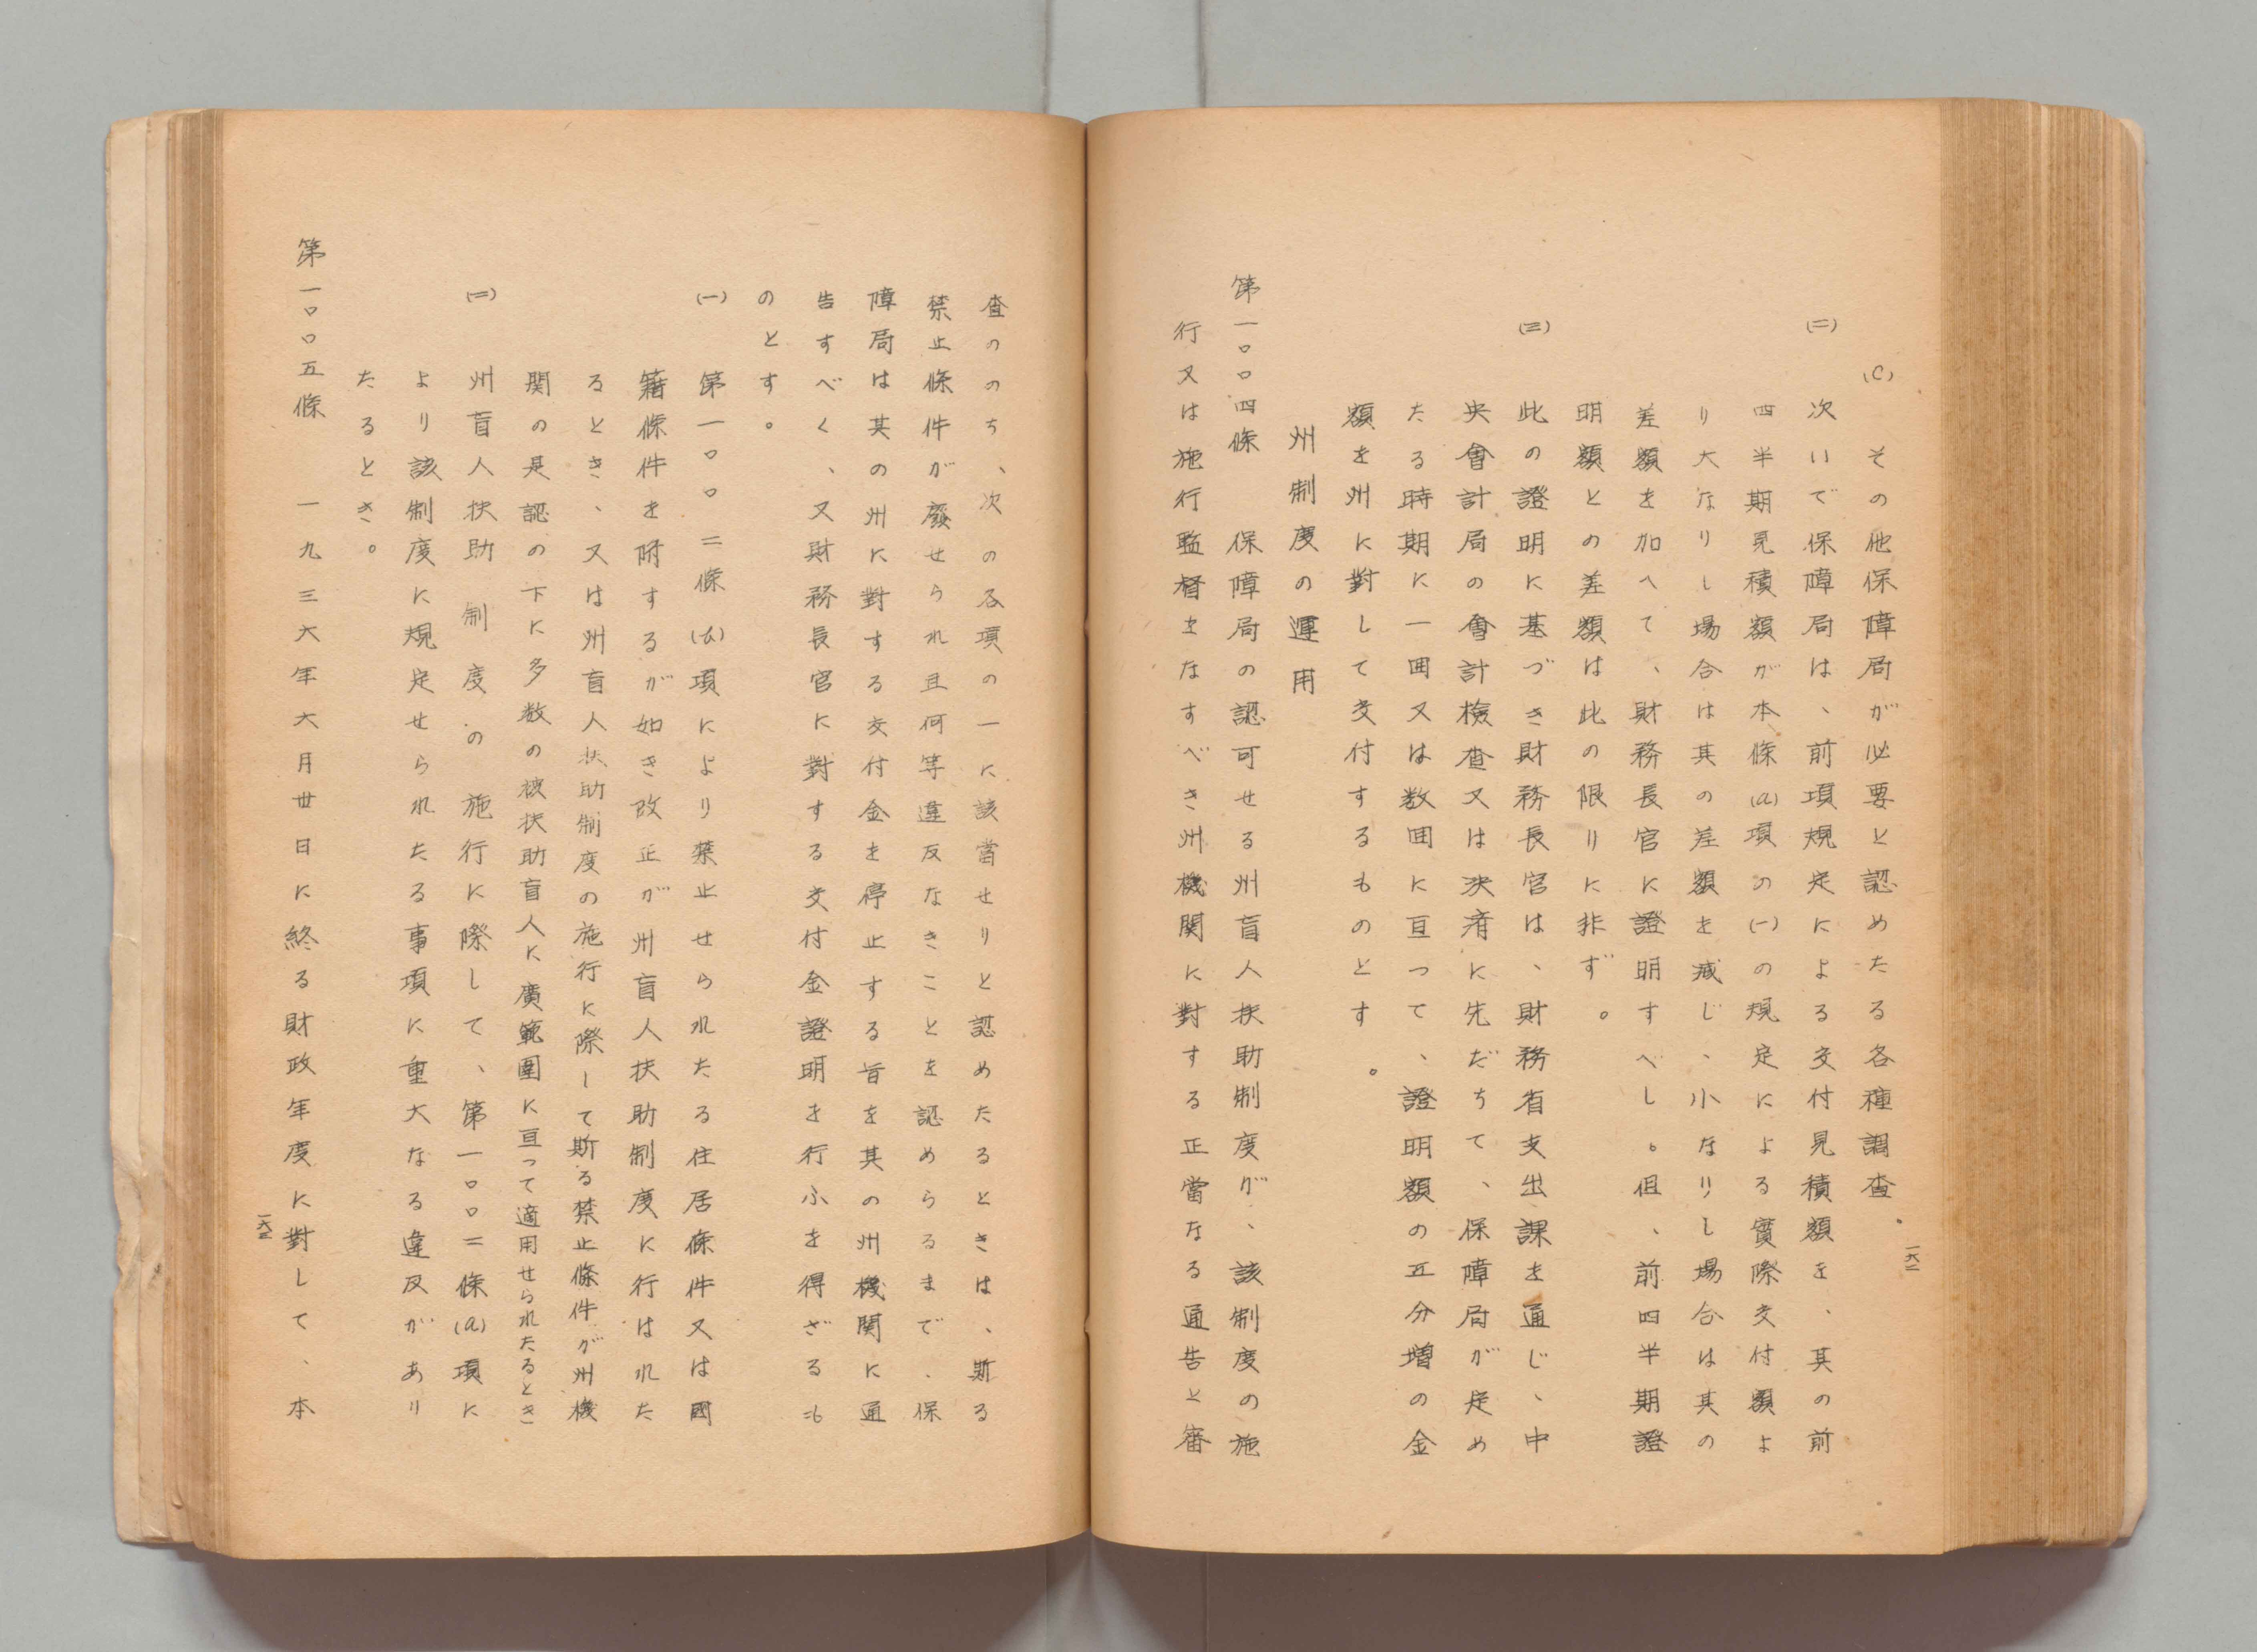 (C) その他保障局が必要と認めたる各種調査。
(二) 次いで保障局は、前項規定による交付見積額を、其の前
四半期見積額が本條(a)項の(一)の規定による實際交付額よ
り大なりし場合は其の差額を減じ、小なりし場合は其の
差額を加へて、財務長官に證明すべし。但、前四半期證
明額との差額は此の限りに非ず。
(三) 此の證明に基づき財務長官は、財務省支出課を通じ、中
央會計局の會計檢査又は決済に先だちて、保障局が定め
たる時期に一囬又は数囬に亘って、證明額の五分増の金
額を州に對して交付するものとす。
州制度の運用
第一〇〇四條 保障局の認可せる州盲人扶助制度が、該制度の施
行又は施行監督をなすべき州機関に對する正當なる通告と審
一六一
査のゝち、次の各項の一に該當せりと認めたるときは、斯る
禁止條件が廢せられ且何等違反なきことを認めらるまで、保
障局は其の州に對する交付金を停止する旨を其の州機関に通
告すべく、又財務長官に對する交付金證明を行ふを得ざるも
のとす。
(一) 第一〇〇二條(b)項により禁止せられたる住居條件又は國
籍條件を附するが如き改正が州盲人扶助制度に行はれた
るとき、又は州盲人扶助制度の施行に際して斯る禁止條件が州機
関の是認の下に多数の被扶助盲人に廣範圍に亘って適用せられたるとき
(二) 州盲人扶助制度の施行に際して、第一〇〇二條(a)項に
より該制度に規定せられたる事項に重大なる違反があり
たるとき。
第一〇〇五條 一九三六年六月卅日に終る財政年度に對して、本
一六二